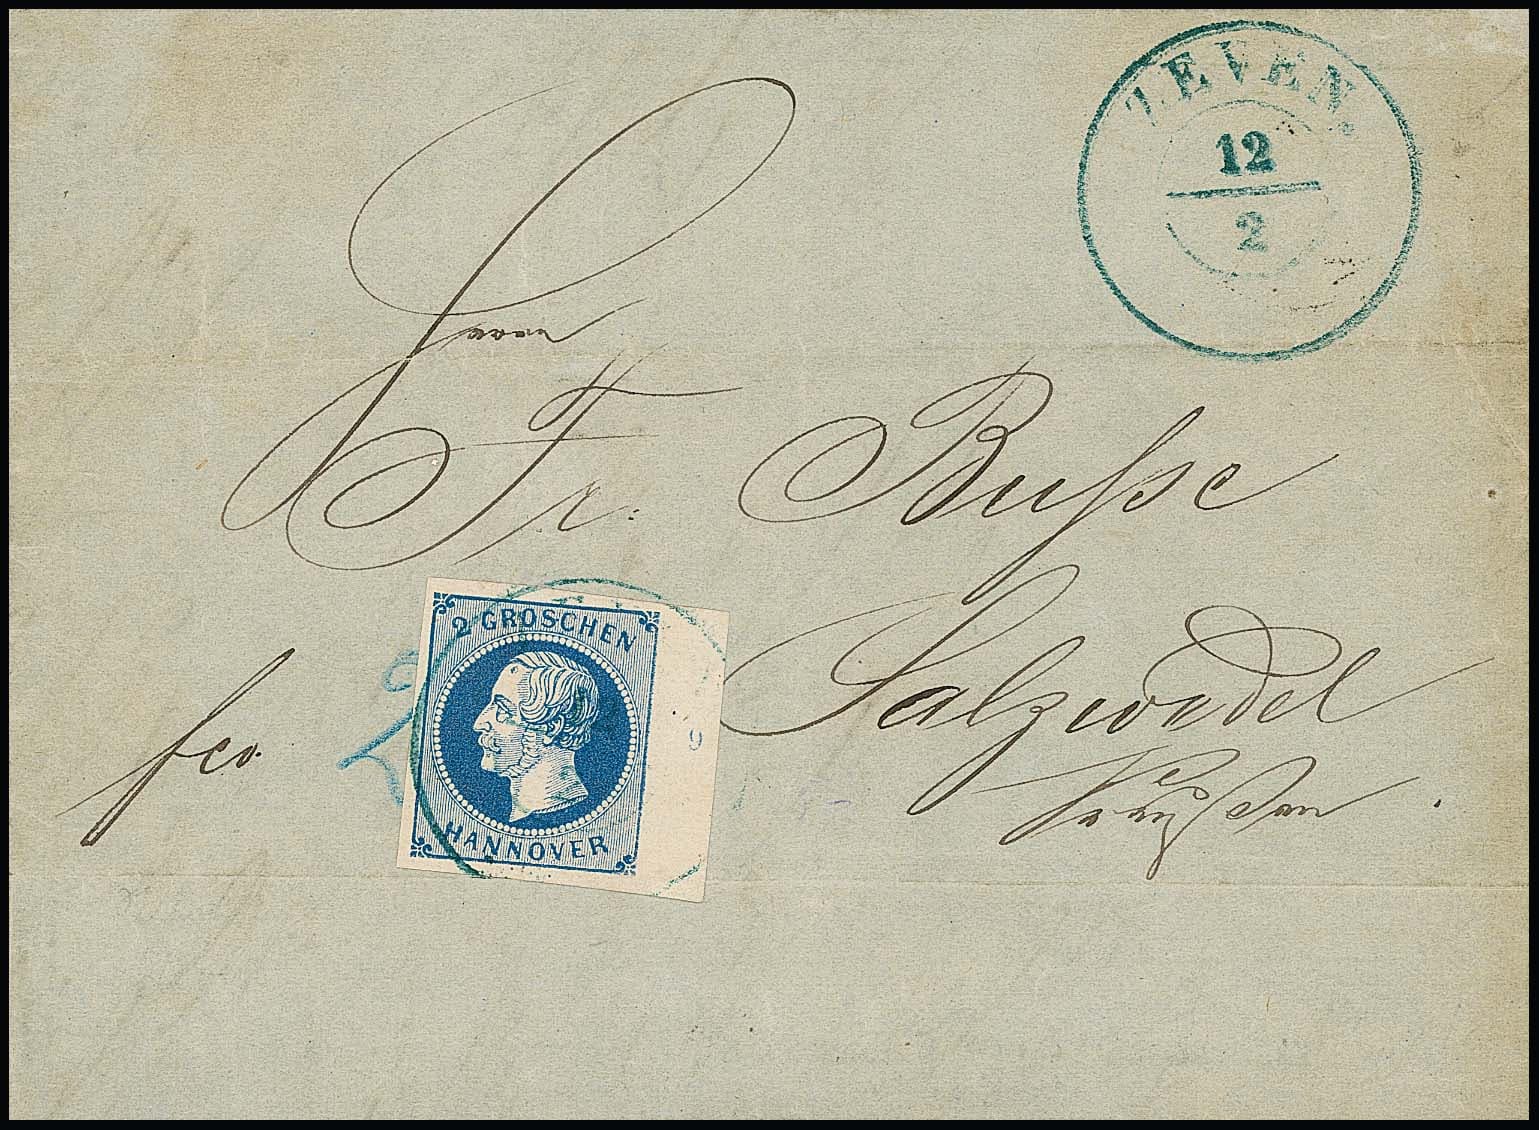 ZEVEN.
12
2
Herrn
Fr. Busse
Salzwedel
Preußen
fco.
2
2 GROSCHEN
HANNOVER
9